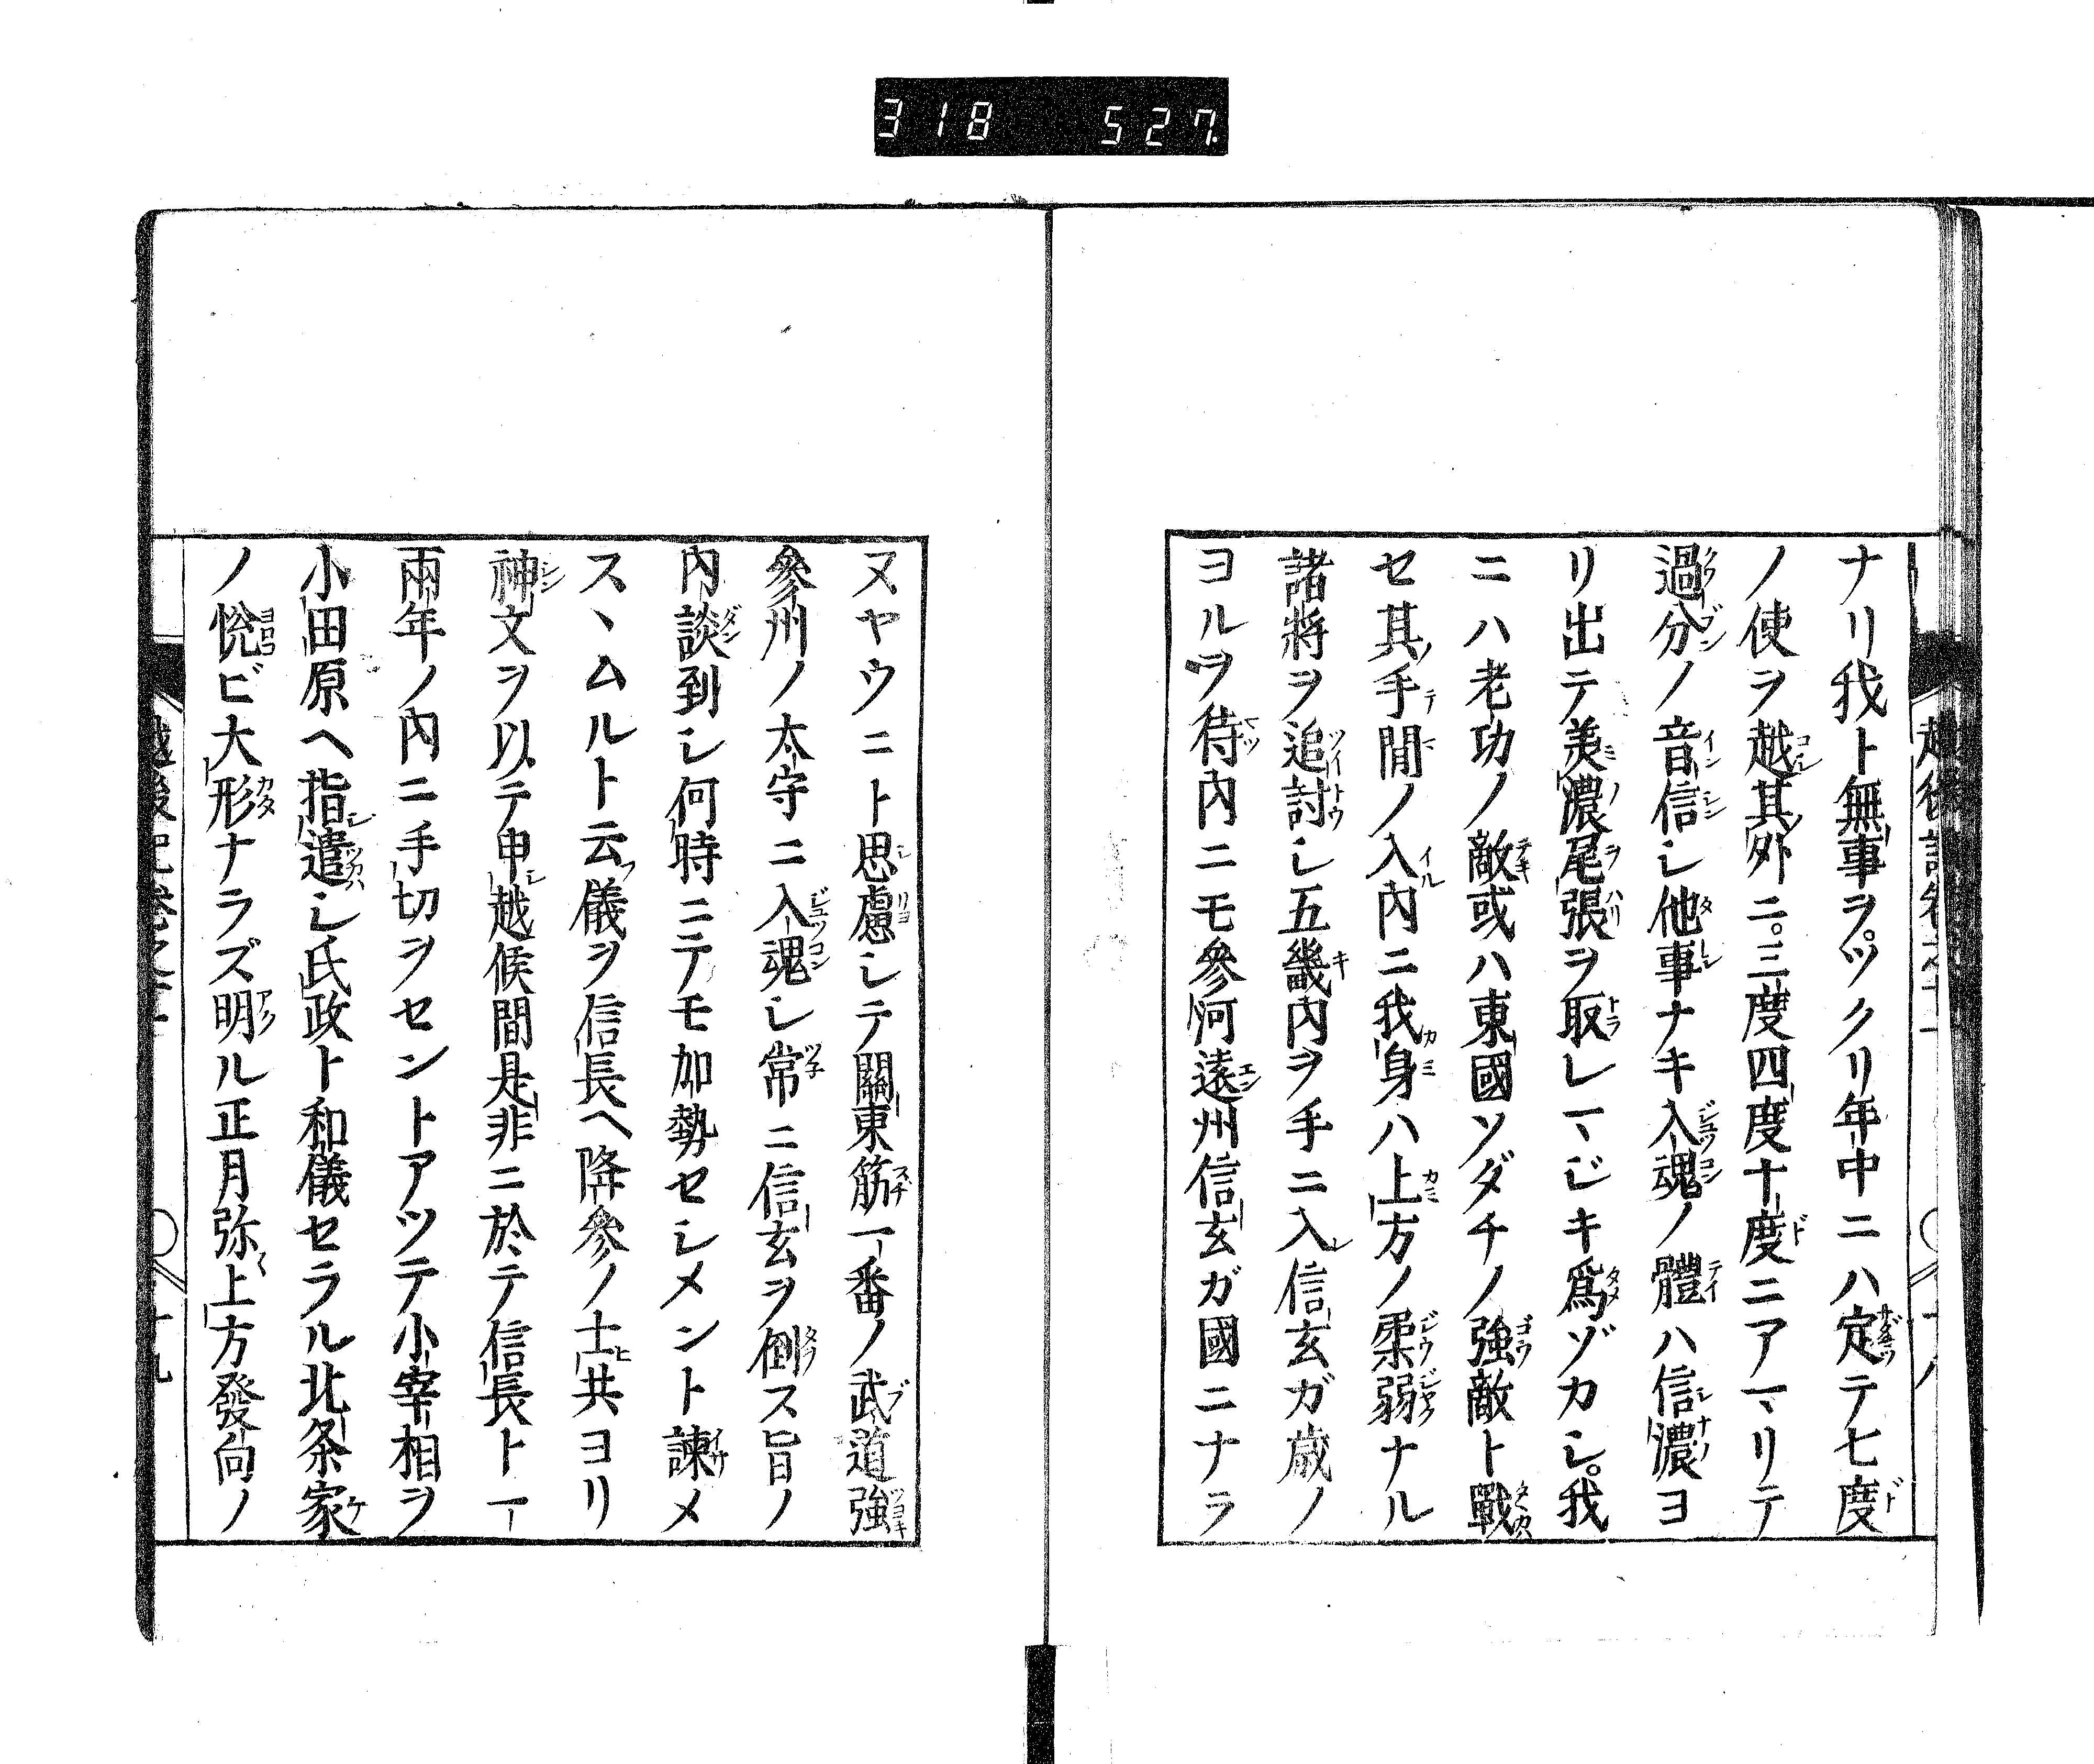 318 527
ナリ我ト無事ヲツクリ年中ニハ定テ七度
ノ使ヲ越其外二三度四度十度ニアマリテ
過分ノ音信シ他事ナキ入魂ノ體ハ信濃ヨ
リ出テ美濃尾張ヲ取レマジキ爲ゾカシ我
ニハ老功ノ敵或ハ東國ソダチノ強敵ト戰
セ其手間ノ入内ニ我身ハ上方ノ柔弱ナル
諸將ヲ追討シ五畿内ヲ手ニ入信玄ガ歳ノ
ヨルヲ待内ニモ參河遠州信玄ガ國ニナラ
ヌヤウニト思慮シテ關東筋一番ノ武道強
參州ノ太守ニ入魂シ常ニ信玄ヲ倒ス旨ノ
内談到シ何時ニテモ加勢セシメント諫メ
スヽムルト云儀ヲ信長ヘ降參ノ士共ヨリ
神文ヲ以テ申越候間是非ニ於テ信長ト一
兩年ノ内ニ手切ヲセントアツテ小宰相ヲ
小田原ヘ指遣シ氏政ト和儀セラル北条家
ノ悅ビ大形ナラズ明ル正月弥上方發向ノ